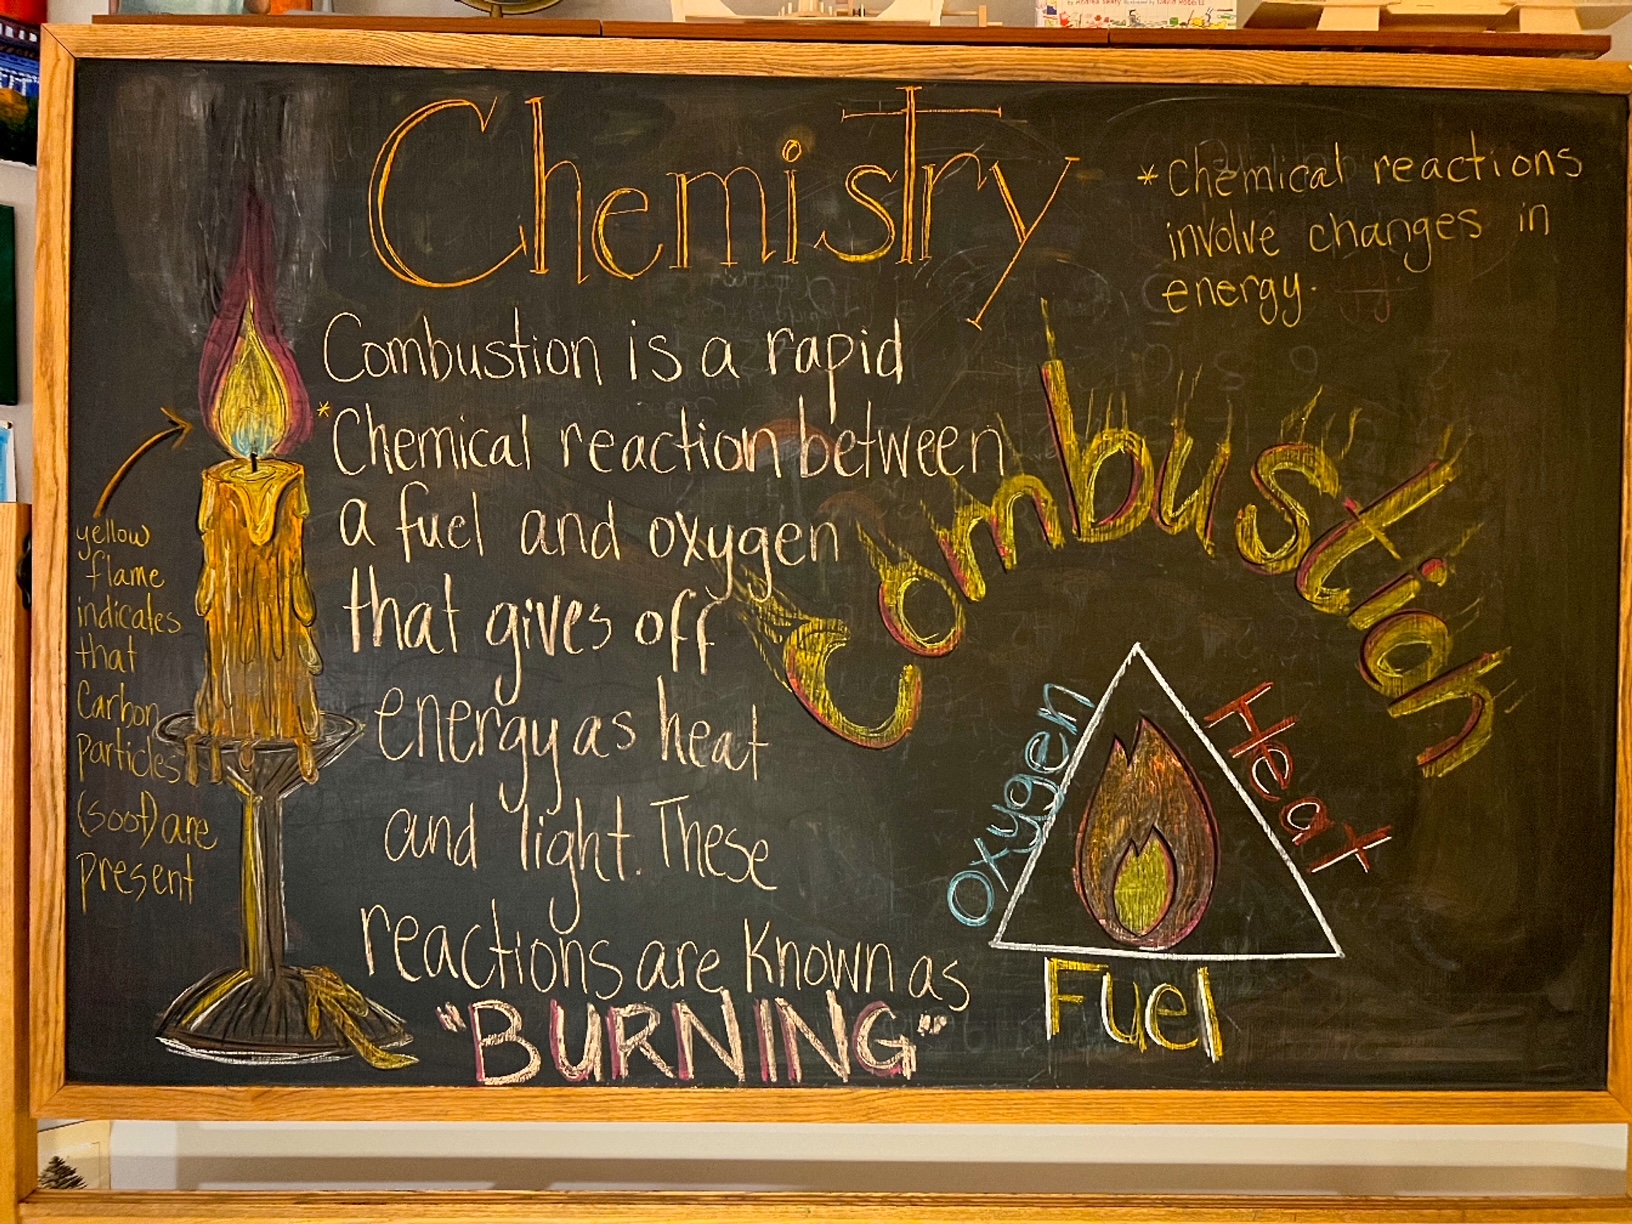 Chemistry
* Chemical reactions
involve changes in
energy.
Combustion is a rapid
* Chemical reaction between
a fuel and oxygen
that gives off
energy as heat
and light. These
reactions are known as
"BURNING"
Combustion
Oxygen
Heat
Fuel
yellow
flame
indicates
that
Carbon
particles
(soot) are
present